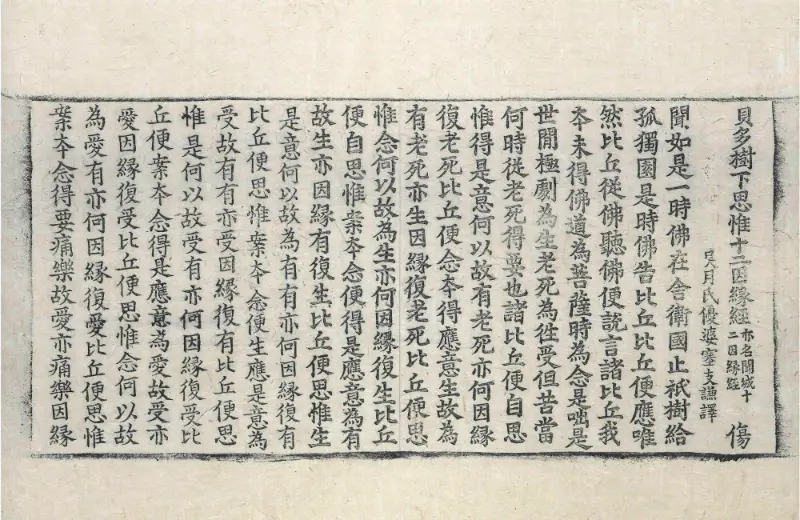 貝多樹下思惟十二因緣經 亦名聞城十二因緣經 傷
吳月氏優婆塞支謙譯
聞如是一時佛在舍衛國止祇樹給
孤獨園是時佛告比丘比丘便應唯
然比丘從佛聽佛便說言諸比丘我
夲未得佛道為菩薩時為念是咄是
世間極劇為生老死為徃受但苦當
何時從老死得要也諸比丘便自思
惟得是意何以故有老死亦何因緣
復老死比丘便念夲得應意生故為
有老死亦生因緣復老死比丘便思
惟念何以故為生亦何因緣復生比丘
便自思惟案夲念便得是應意為有
故生亦因緣有復生比丘便思惟生
是意何以故為有有亦何因緣復有
比丘便思惟案夲念便生應是意為
受故有有亦受因緣復有比丘便思
惟是何以故受有亦何因緣復受比
丘便案夲念得是應意為愛故受亦
愛因緣復受比丘便思惟念何以故
為愛有亦何因緣復愛比丘便思惟
案夲念得要痛樂故愛亦痛樂因緣